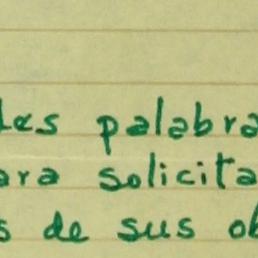 les palabra
ara solicita
s de sus ob